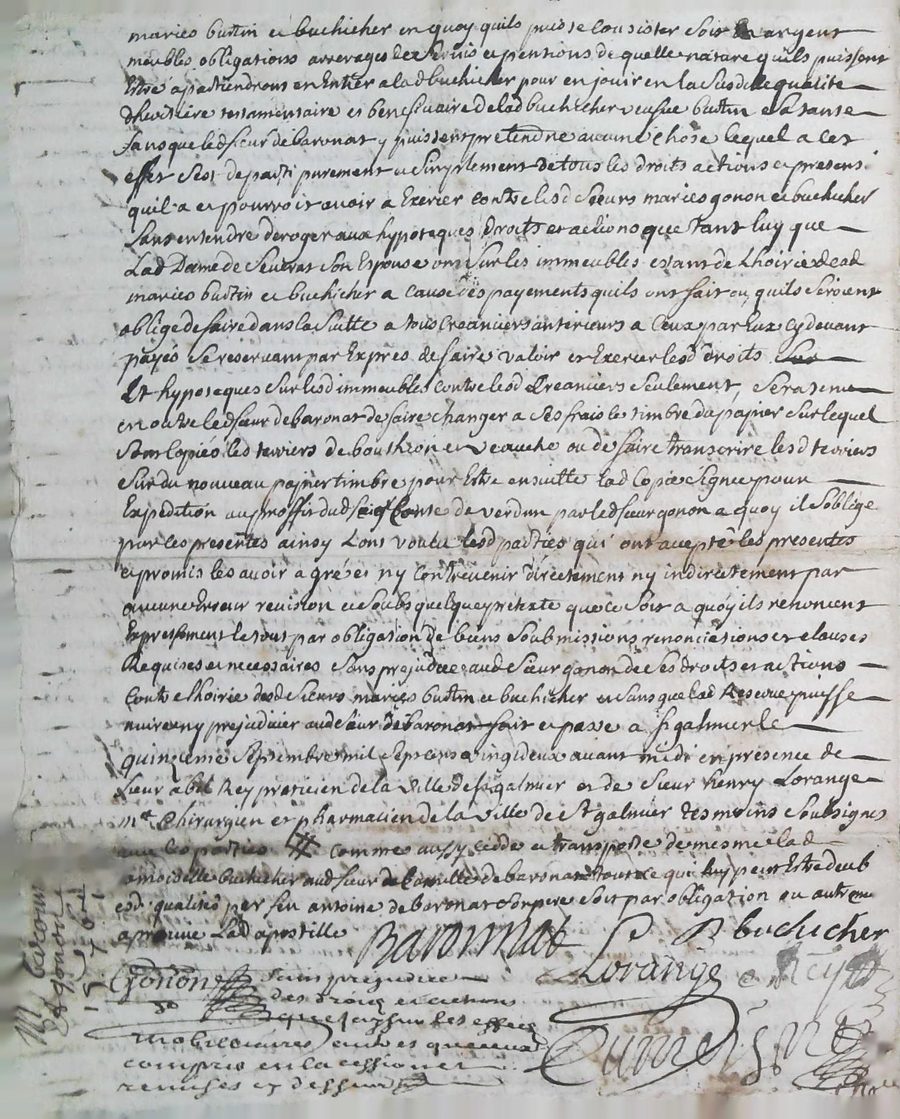 mariés buttin et buchicher en quoy quils puisse consister soit en argent
meubles obligations arrerages de servis et pentions de quelle nature quils puissent
Estre apartiendront en Entier a lad buchicher pour en jouir en la susditte qualité
dheritiere testamentaire et beneficiaire de lad buchicher veufue buttin et sa tante
sans que led sieur de baronat y puissent pretendre aucune chose lequel a cet
effet sest departi purement et simplement de tous les droits actions et pretens.
quil a et pourroit avoir a Exercer contre lesd sieurs mariés gonon et buchicher
sans entendre deroger aux hypoteques droits et actions que tant luy que
Lad Dame de son Espouse ont sur les immeubles estant de Lhoirie desd
mariés buttin et buchicher a cause des payements quils ont fait ou quils seroient
obligé de faire dans la suitte a tous creanciers anterieurs a ceux par Eux cy devant
payés se reservant par Exprès de faire valoir et Exercer lesd droits
Et hypoteques sur lesd immeubles contre lesd Creanciers seulement, sera tenu
en outre led sieur de baronat de faire changer a ses frais le timbre du papier sur lequel
sont copiés les terriers de bouthéon et veauche ou de faire transcrire lesd terriers
sur du nouveau papier timbré pour Estre ensuitte lad Copie signée pour
Expedition au proffit dud seigr Comte de verdun par led sieur gonon a quoy il soblige
par ces presentes ainsy Lont voulu lesd parties qui ont accepté les presentes
et promis les avoir a gré et ny contrevenir directement ny indirectement par
aucune Erreur revision et soubs quelque pretexte que ce soit a quoy ils renoncent
Expressement le tout par obligation de biens soubmissions renonciations et clauses
Requises et necessaires sans prejudice aud sieur gonon de ses droits et actions
contre lhoirie desd sieurs mariés buttin et buchicher et sans que lad Reserve puisse
nuire ny prejudicier aud sieur de baronat fait et passé a st galmier le
quinzieme septembre mil sept cens vingt deux avant midi en presence de
sieur abil Rey praticien de la ville de st galmier et de sieur henry Lorange
mtre chirurgien et pharmacien de la ville de st galmier tesmoins soubsignés
avec les parties # comme aussy cedde et transporte de mesme lad
damoiselle buchicher aud sieur de baronat tout ce qui luy peut Estre deub
esd qualités par feu antoine de baronat son pere soit par obligation ou autremt
aprouvé Lad apostille
Baronnat B buchicher
Lorange Rey
Gonon sans prejudice
des droits et actions
que jay sur les effects
mobiliaires autres que ceux
compris en la cession et
remises cy dessus